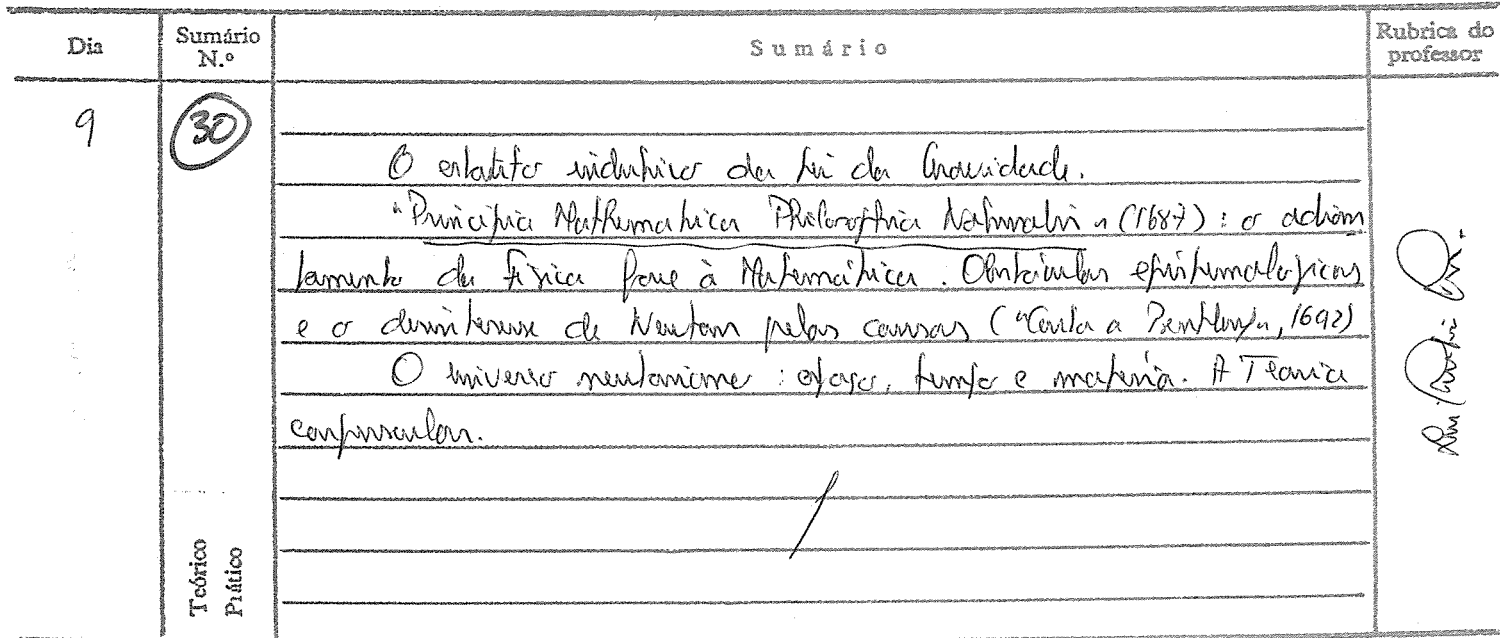 Dia
Sumário N.º
Sumário
Rubrica do professor
9
30
O estatuto indutivo da Lei da Gravidade.
"Principia Mathematica Philosophia Naturalis" (1687): o adian
tamento da Física face à Matemática. Obstáculos epistemologicos
e o desinteresse de Newton pelas causas ("Carta a Bentley", 1692)
O universo newtoniano: espaço, tempo e matéria. A Teoria
corpuscular.
Teórico
Prático